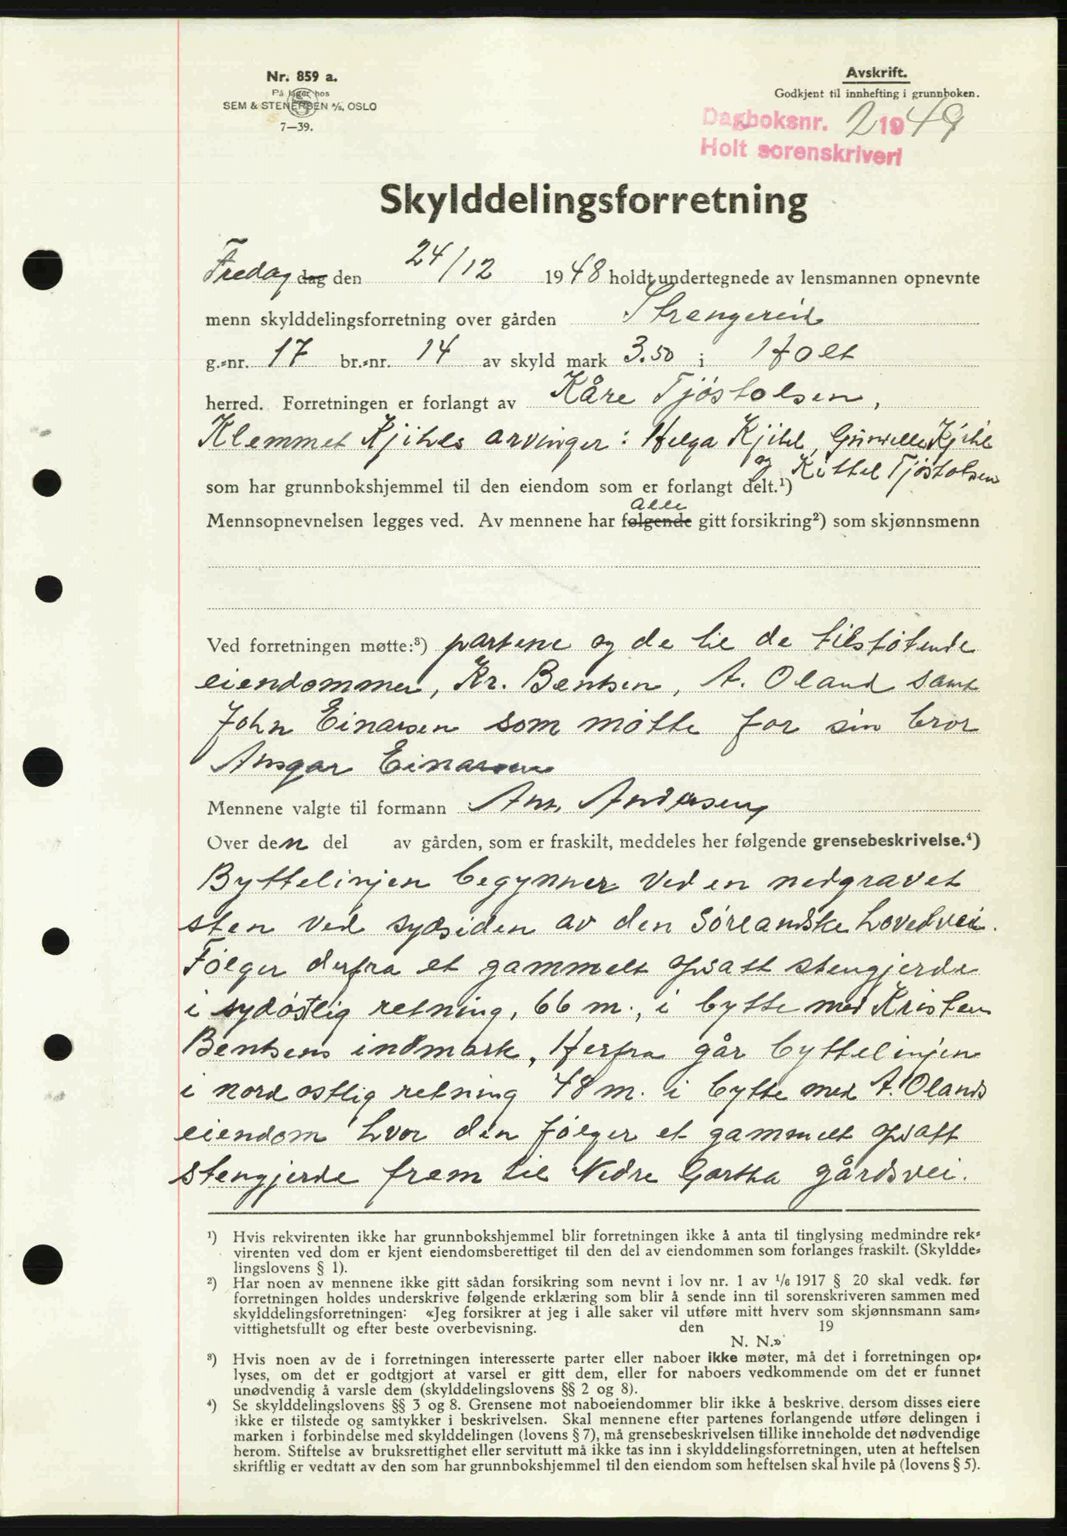 Nr. 859 a.
På lager hos
SEM & STENERSEN A/S, OSLO
7—39.
Avskrift.
Godkjent til innhefting i grunnboken.
Dagboksnr. 2 1949
Holt sorenskriveri
Skylddelingsforretning
Fredag dag den 24/12 1948 holdt undertegnede av lensmannen opnevnte
menn skylddelingsforretning over gården Strengereid
g.-nr. 17 br.-nr. 14 av skyld mark 3.50 i Holt
herred. Forretningen er forlangt av Kåre Tjöstolsen,
Klemmet Kjihls arvinger: Helga Kjihl, Kjihl
og Kittel Tjöstolsen
som har grunnbokshjemmel til den eiendom som er forlangt delt.¹)
Alle
Mennsopnevnelsen legges ved. Av mennene har følgende gitt forsikring²) som skjønnsmenn
Ved forretningen møtte:³) partene og de til de tilstötende
eiendommer, Kr. Bentsen, A. Oland samt
John Einarsen som mötte for sin bror
Ansgar Einarsen
Mennene valgte til formann Andersen
Over den del av gården, som er fraskilt, meddeles her følgende grensebeskrivelse.⁴)
Byttelinjen begynner ved en nedgravet
sten ved sydsiden av den Sörlandske hovedvei.
Fölger derfra et gammelt opsatt stengjerde
i sydöstlig retning, 66 m., i bytte med Kristen
Bentsens indmark, Herfra går byttelinjen
i nordostlig retning 48 m. i bytte med A. Olands
eiendom hvor den fölger et gammelt opsatt
stengjerde frem til Nedre Gartha gårdsvei.
¹) Hvis rekvirenten ikke har grunnbokshjemmel blir forretningen ikke å anta til tinglysing medmindre rek-
virenten ved dom er kjent eiendomsberettiget til den del av eiendommen som forlanges fraskilt. (Skyldde-
lingslovens § 1).
²) Har noen av mennene ikke gitt sådan forsikring som nevnt i lov nr. 1 av 1/6 1917 § 20 skal vedk. før
forretningen holdes underskrive følgende erklæring som blir å sende inn til sorenskriveren sammen med
skylddelingsforretningen: «Jeg forsikrer at jeg i alle saker vil utføre mitt hverv som skjønnsmann sam-
vittighetsfullt og efter beste overbevisning. den 19
N. N.»
³) Hvis noen av de i forretningen interesserte parter eller naboer ikke møter, må det i forretningen op-
lyses, om det er godtgjort at varsel er gitt dem, eller for naboers vedkommende om det er funnet
unødvendig å varsle dem (skylddelingslovens §§ 2 og 8).
⁴) Se skylddelingslovens §§ 3 og 8. Grensene mot naboeiendommer blir ikke å beskrive, dersom disses eiere
ikke er tilstede og samtykker i beskrivelsen. Skal mennene efter partenes forlangende utføre delingen i
marken i forbindelse med skylddelingen (lovens § 7), må grensebeskrivelsen tillike inneholde det nødvendige
herom. Stiftelse av bruksrettighet eller servitutt må ikke tas inn i skylddelingsforretningen, uten at heftelsen
skriftlig er vedtatt av den som har grunnbokshjemmel til den eiendom som heftelsen skal hvile på (lovens § 5).